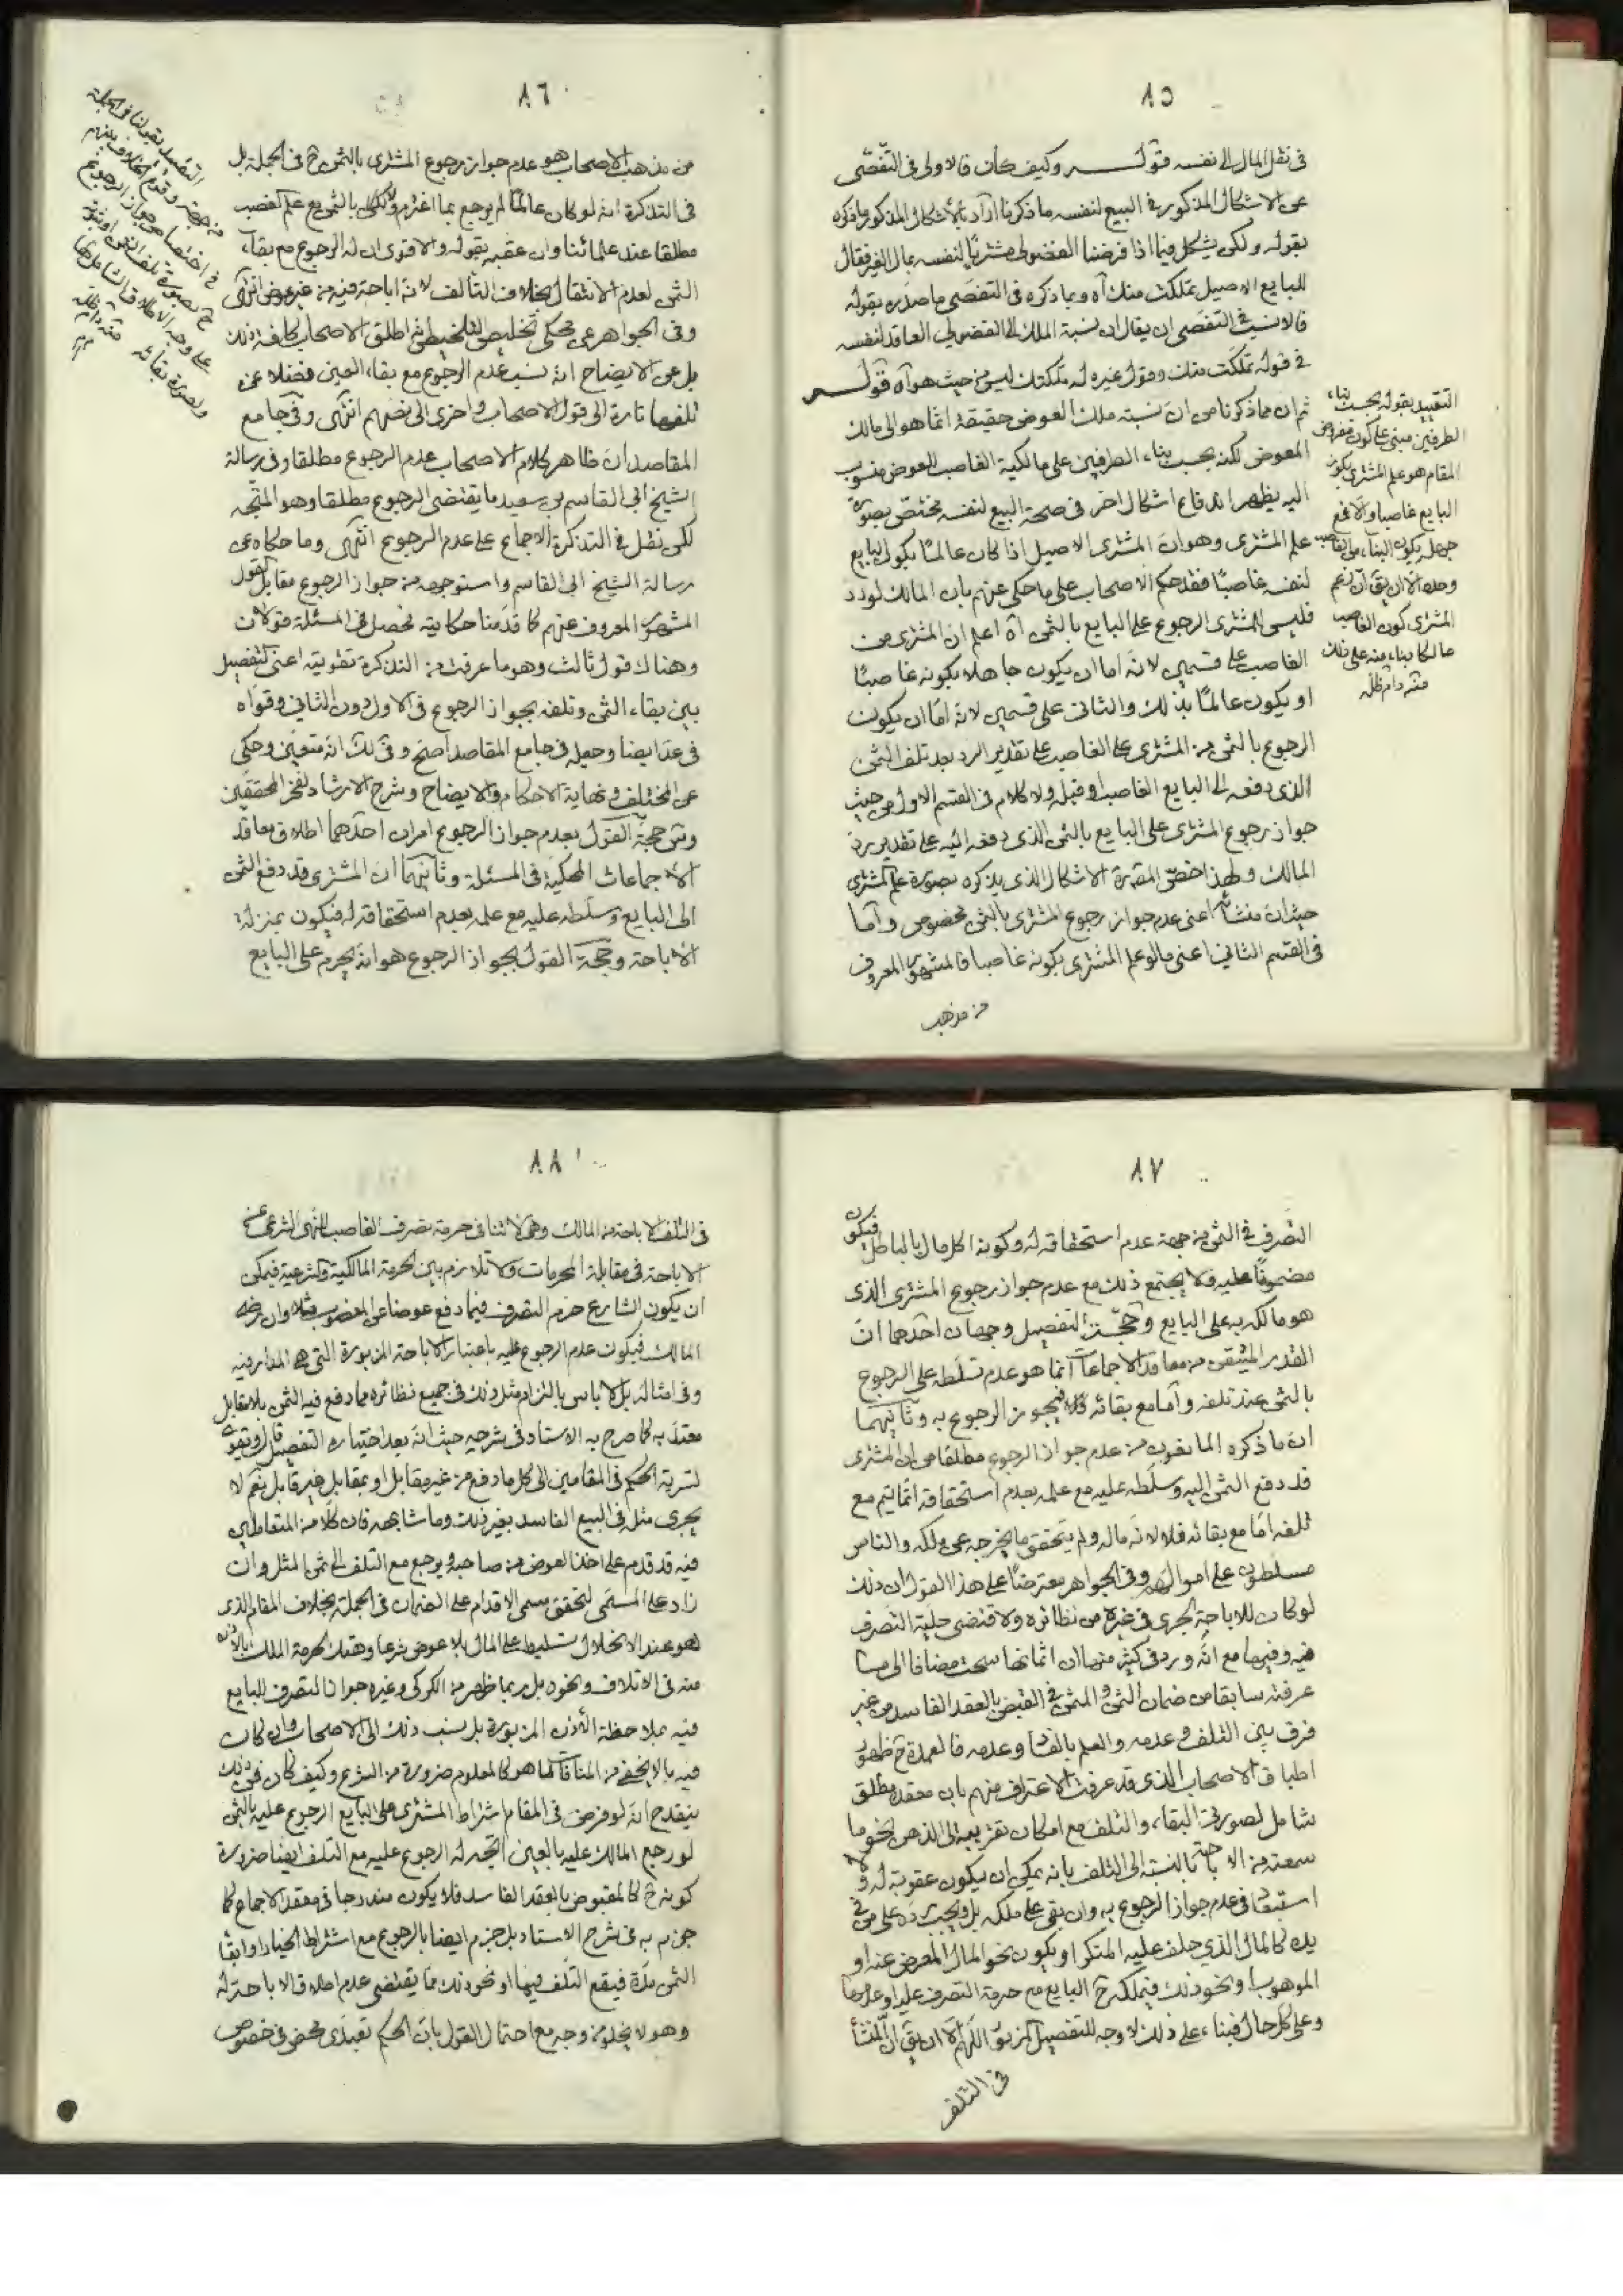 ٨٥
فى نقل المال الى نفسه قوله وكيف كان فالاولى فى التفصّى
عن الاشكال المذكور فى البيع لنفسه ما ذكرنا اراد بالاشكال المذكور ما ذكره
بقوله ولكن يشكل فيما اذا فرضنا الفضولى مشتريًا لنفسه بمال الغير فقال
للبايع الاصيل تملكت منك آه وبما ذكره فى التفصّى ما صدره بقوله
فالانسب فى التفصّى ان يقال ان نسبة الملك الى الفضولى العاقد لنفسه
فى قوله تملكت منك وقول غيره له ملكتك ليس من حيث هو آه قوله
ثم ان مما ذكرنا من ان نسبة ملك العوض حقيقة انما هو الى مالك
المعوض لكنه بحسب بناء الطرفين على مالكية الغاصب للعوض منسوب
اليه يظهر اندفاع اشكال اخر فى صحة البيع لنفسه مختصّ بصورة
علم المشترى وهو ان المشترى الاصيل اذا كان عالمًا بكون البايع
لنفسه غاصبًا فقد حكم الاصحاب على ما حكى عنهم بان المالك لو رد
فليس للمشترى الرجوع على البايع بالثمن آه اعلم ان المشترى من
الغاصب على قسمين لانه اما ان يكون جاهلا بكونه غاصبًا
او يكون عالمًا بذلك والثانى على قسمين لانه امّا ان يكون
الرجوع بالثمن من المشترى على الغاصب على تقدير الرد بعد تلف الثمن
الذى دفعه الى البايع الغاصب او قبله ولا كلام فى القسم الاول من حيث
جواز رجوع المشترى على البايع بالثمن الذى دفعه اليه على تقدير رد
المالك ولهذا خصّ المقرة الاشكال الذى يذكره بصورة علم المشترى
حيث ان منشأه اعنى عدم جواز رجوع المشترى بالثمن مخصوص وامّا
فى القسم الثانى اعنى ما لو علم المشترى بكونه غاصبا فالمشهور المعروف
من مذهب
التقييد بقوله بحسب بناء
الطرفين مبنى على كون مفروض
المقام هو علم المشترى بكون
البايع غاصبا والّا فمع
جهله يكون البناء من الغاصب
وحده الّا ان يقال ان زعم
المشترى كون الغاصب
مالكا بناء منه على ذلك
منه دام ظله
٨٦
من مذهب الاصحاب هو عدم جواز رجوع المشترى بالثمن ح فى الجملة بل
فى التذكرة انه لو كان عالمًا لم يرجع بما اغترم ولا بالثمن مع علم الغصب
مطلقا عند علمائنا وان عقبه بقوله والاقوى ان له الرجوع مع بقاء
الثمن لعدم الانتقال بخلاف التالف لانه اباحة فيه من غير عوض انتهى
وفى الجواهر عن محكى تخليص التلخيص انه اطلق الاصحاب كافة ذلك
بل عن الايضاح انه نسب عدم الرجوع مع بقاء العين فضلا عن
تلفها تارة الى قول الاصحاب واخرى الى نصهم انتهى وفى جامع
المقاصد ان ظاهر كلام الاصحاب عدم الرجوع مطلقا وفى رسالة
الشيخ ابى القاسم بن سعيد ما يقتضى الرجوع مطلقا وهو المتجه
لكن نقل فى التذكرة الاجماع على عدم الرجوع انتهى وما حكاه عن
رسالة الشيخ ابى القاسم واستوجهه من جواز الرجوع مقابل القول
المشهور المعروف عنهم كما قدمنا حكايته فحصل فى المسئلة قولان
وهناك قول ثالث وهو ما عرفت من التذكرة تقويته اعنى التفصيل
بين بقاء الثمن وتلفه بجواز الرجوع فى الاول دون الثانى وقوّاه
فى عد ايضا وجعله فى جامع المقاصد اصح وفى لك انه متعين وحكى
عن المختلف ونهاية الاحكام والايضاح وشرح الارشاد لفخر المحققين
وش حجة القول بعدم جواز الرجوع امران احدهما اطلاق معاقد
الاجماعات المحكية فى المسئلة وثانيهما ان المشترى قد دفع الثمن
الى البايع وسلّطه عليه مع علمه بعدم استحقاقه له فيكون بمنزلة
الاباحة وحجة القول بجواز الرجوع هو انه يحرم على البايع
التقييد بقولنا فى الجملة
من جهة وقوع الخلاف بينهم
فى اختصاص جواز الرجوع
ح بصورة تلف الثمن او ثبوته
على وجه الاطلاق الشامل لها
ولصورة بقائه منه دام ظله
٨٧
التصرف فى الثمن من جهة عدم استحقاقه له وكونه اكل مال بالباطل فيكون
مضمونًا عليه فلا يجتمع ذلك مع عدم جواز رجوع المشترى الذى
هو مالكه به على البايع وحجّة التفصيل وجهان احدهما ان
القدر المتيقن من معاقد الاجماعات انما هو عدم تسلّطه على الرجوع
بالثمن عند تلفه وامّا مع بقائه فلا فيجوز الرجوع به وثانيهما
ان ما ذكره المانعون من عدم جواز الرجوع مطلقا من ان المشترى
قد دفع الثمن اليه وسلّطه عليه مع علمه بعدم استحقاقه انما يتم مع
تلفه امّا مع بقائه فلا لانّه ماله ولم يتحقق ما يخرجه عن ملكه والناس
مسلطون على اموالهم وفى الجواهر معترضًا على هذا القول ان ذلك
لو كان للاباحة لجرى فى غيره من نظائره ولاقتضى حلية التصرف
فيه وفيها مع انه ورد فى كثير منها ان اثمانها سحت مضافا الى ما
عرفته سابقا من ضمان الثمن والمثمن فى القبض بالعقد الفاسد من غير
فرق بين التلف وعدمه والعلم بالفساد وعدمه فالعمدة ح ظهور
اطباق الاصحاب الذى قد عرفت الاعتراف منهم بان معقده مطلق
شامل لصورتى البقاء والتلف مع امكان تقريبه الى الذهن بنحو ما
سمعته من الاباحة بالنسبة الى التلف بانه يمكن ان يكون عقوبة له ولا
استبعاد فى عدم جواز الرجوع به وان بقى على ملكه بل ويجب رده على من فى
يده كالمال الذى حلف عليه المنكر او يكون نحو المال المعرض عنه او
الموهوب ونحو ذلك فيملكه ح البايع مع حرمة التصرف عليه او عدمها
وعلى كل حال فبناء على ذلك لا وجه للتفصيل المزبور اللهم الّا ان يق ان المنشأ
فى التلف
٨٨
فى التلف الاباحة من المالك وهى لا تنافى حرمة تصرف الغاصب للنهى الشرعى عن
الاباحة فى مقابلة المحرمات ولا تلازم بين الحرمة المالكية والشرعية فيمكن
ان يكون الشارع حرم التصرف فيما دفع عوضا عن المغصوب مثلا وان رضى
المالك فيكون عدم الرجوع عليه باعتبار الاباحة المزبورة التى هى المدار فيه
وفى امثاله بل لا باس بالتزام مثل ذلك فى جميع نظائره مما دفع فيه الثمن بلا مقابل
معتد به كما صرح به الاستاد فى شرحه حيث انه بعد اختياره التفصيل قال ويقوى
تسرية الحكم فى المقامين الى كل ما دفع من غير مقابل او بمقابل غير قابل نعم لا
يجرى مثله فى البيع الفاسد بغير ذلك وما شابهه فان كلّا من المتعاملين
فيه قد قدم على اخذ العوض من صاحبه ويرجع مع التلف الى ثمن المثل وان
زاد على المسمّى لتحقق مسمى الاقدام على الضمان فى الجملة بخلاف المقام الذى
هو عند الانحلال تسليط على المال بلا عوض شرعا وهتك لحرمة الملك بالاذن
منه فى الاتلاف ونحوه بل ربما ظهر من الكركى وغيره جواز التصرف للبايع
فيه بملاحظة الاذن المزبورة بل نسب ذلك الى الاصحاب وان كان
فيه ما لا يخفى من المنافاة لما هو كالمعلوم ضرورة من الشرع وكيف كان فمن ذلك
ينقدح انه لو فرض فى المقام اشتراط المشترى على البايع الرجوع عليه بالثمن
لو رجع المالك عليه بالعين اتجه له الرجوع عليه مع التلف ايضا ضرورة
كونه ح كالمقبوض بالعقد الفاسد فلا يكون مندرجا فى معقد الاجماع كما
جزم به فى شرح الاستاد بل جزم ايضا بالرجوع مع اشتراط الخيار او ابقاء
الثمن مدّة فيقع التلف فيها او نحو ذلك مما يقتضى عدم اطلاق الاباحة له
وهو لا يخلو من وجه مع احتمال القول بان الحكم تعبدى محض فى خصوص